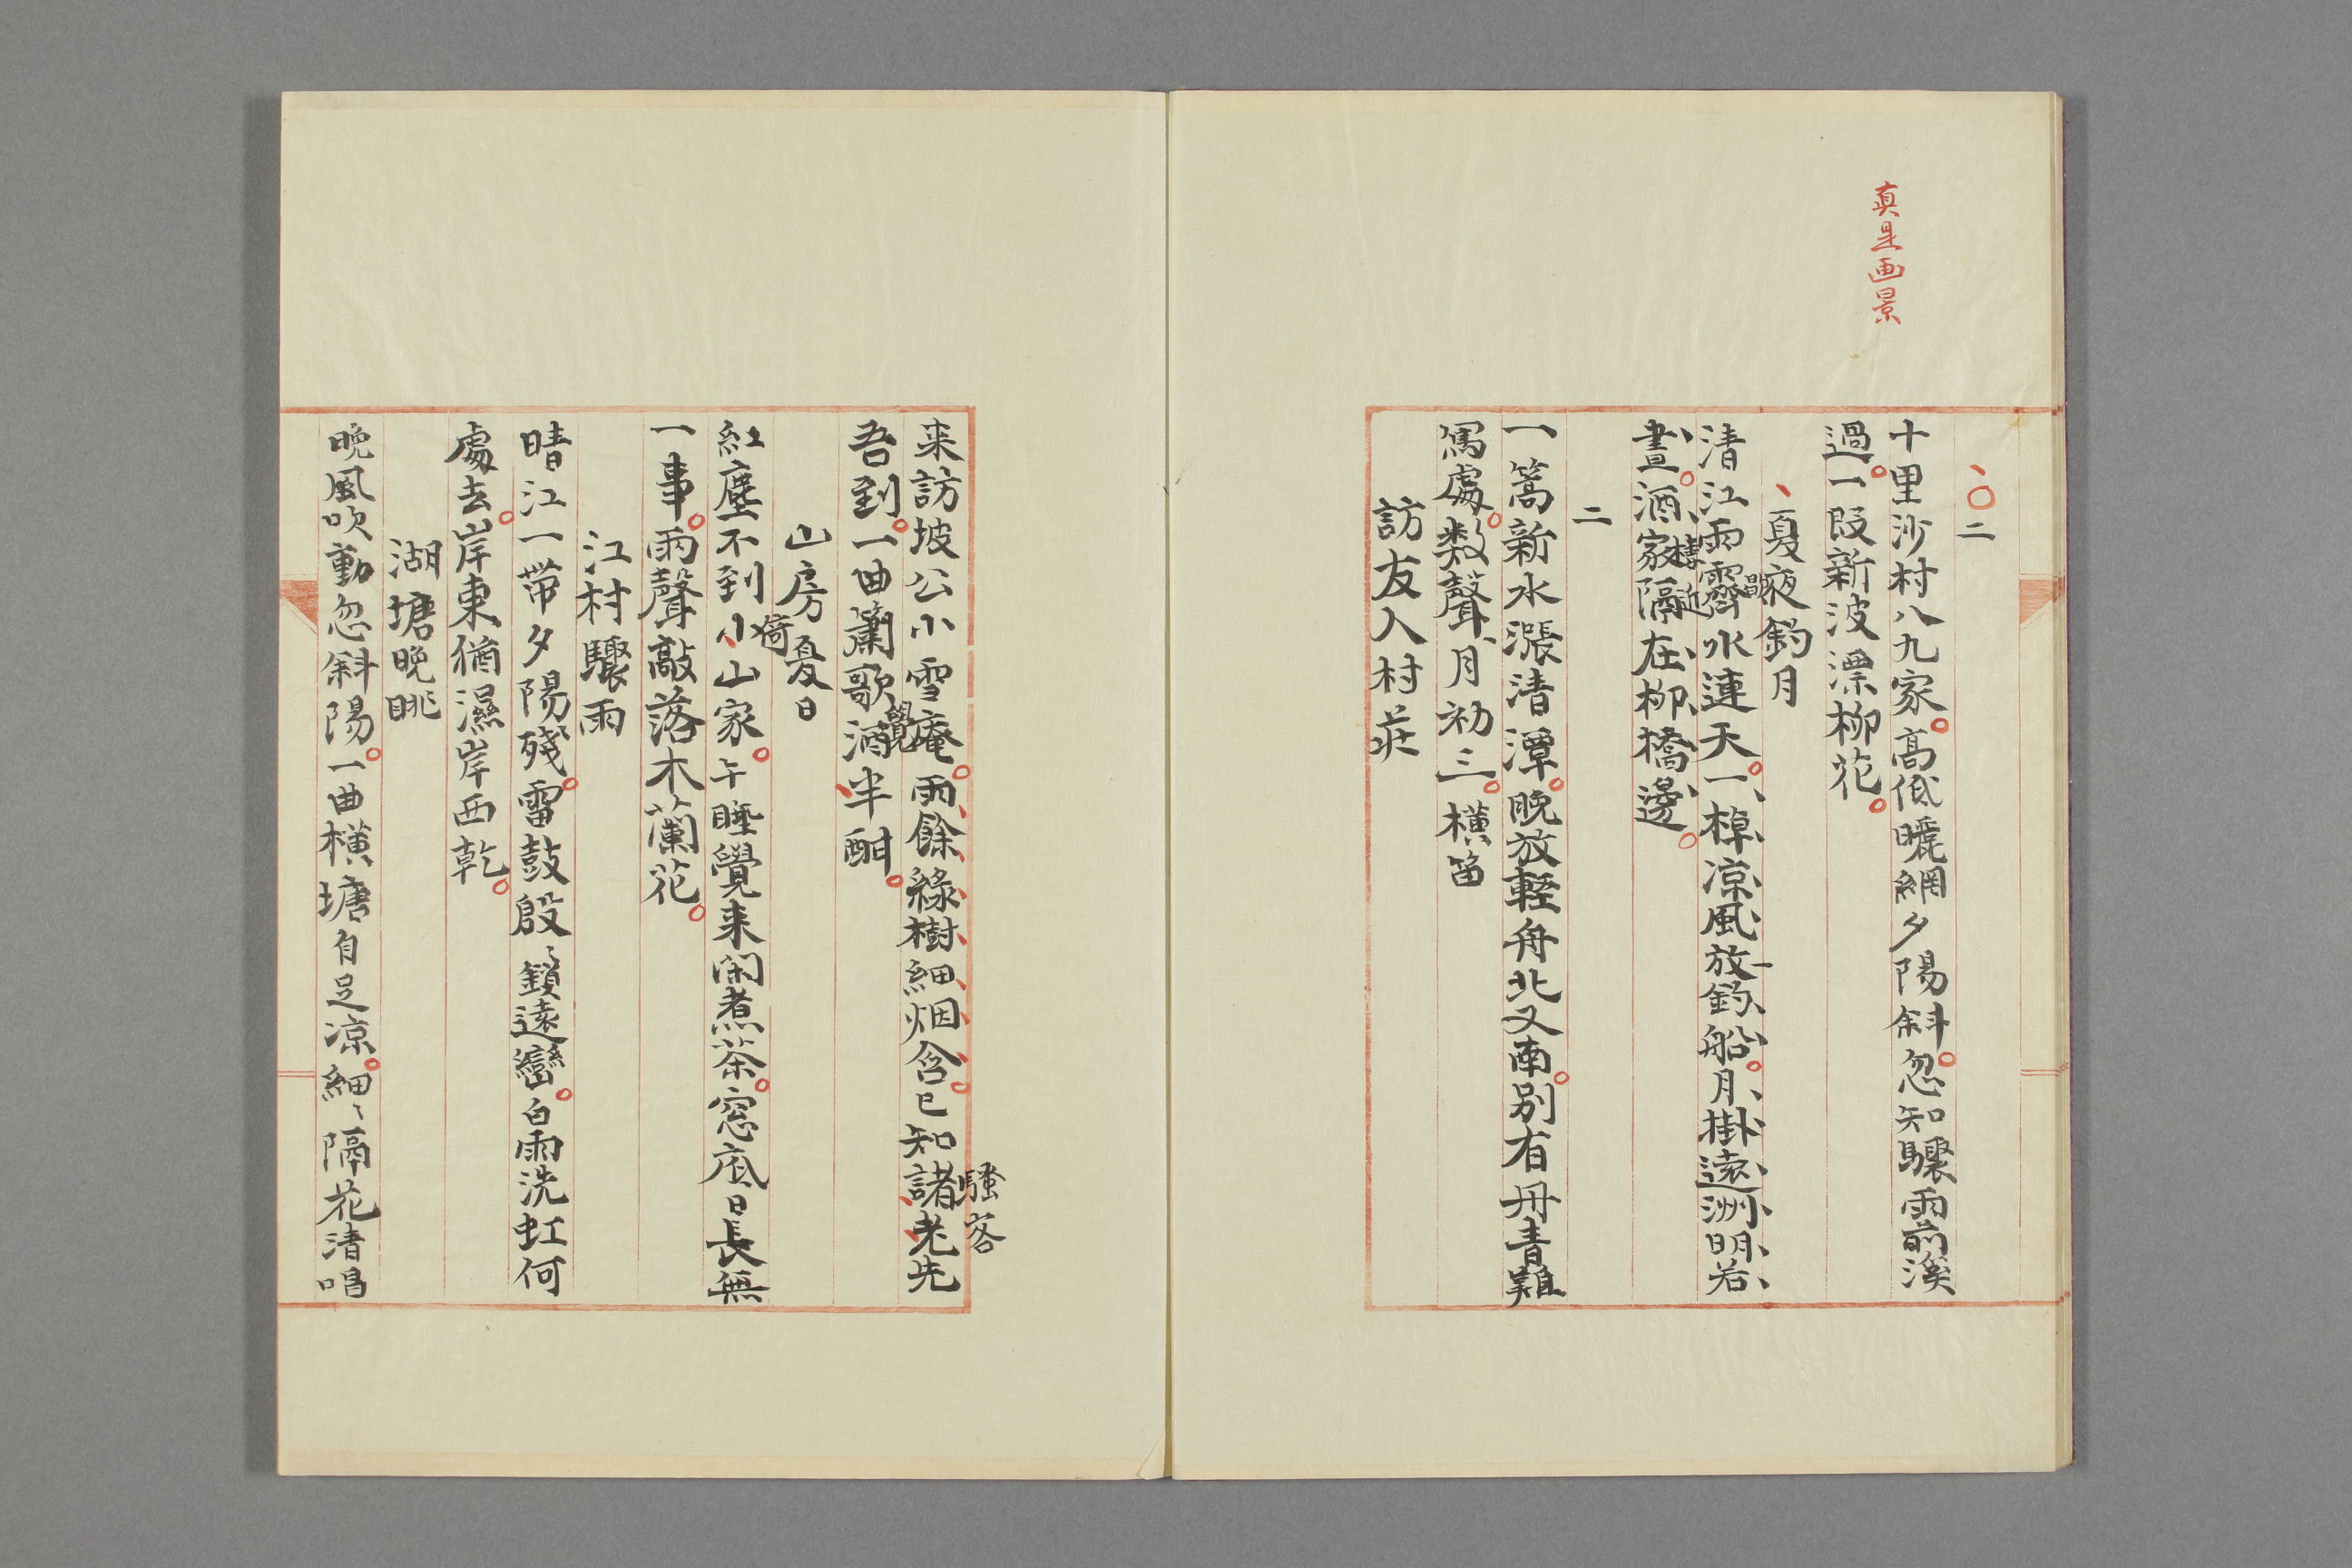 真是画景
二
十里沙村八九家高低曬網夕陽斜忽知驟雨前溪
過一段新波漂柳花
夏夜釣月
清江雨霽水連天一棹凉風放釣船月掛遠洲明若
晝酒家隔在柳橋邊
樓近
二
一篙新水漲清潭晚放軽舟北又南別有丹青難
寫處数聲月初三横笛
訪友人村莊
騒客
来訪坡公小雪庵雨餘緑樹細烟含已知諸老先
覺
吾到一曲蘭歌酒半酣
山房夏日
紅塵不到小山家午睡覺来閑煮茶窓底日長無
一事雨聲敲落木蘭花
江村驟雨
晴江一帶夕陽殘雷鼓殷〻鎖遠巒白雨洗虹何
處去岸東猶濕岸西乾
湖塘晩眺
晩風吹動忽斜陽一曲横塘自足凉細〻隔花清唱